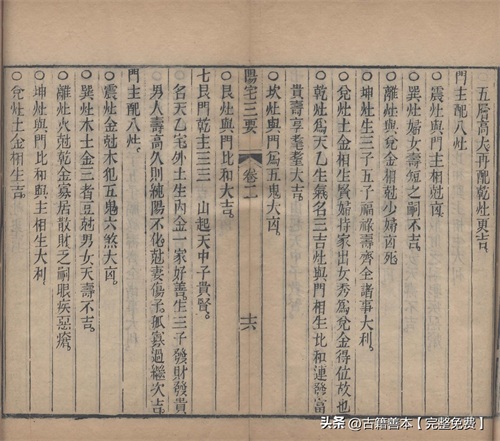 五層高大再配乾更吉
門主配八灶。
○震灶與門主相尅凶
○巽灶婦女壽短之嗣不吉。
○離灶與兌金相尅少婦凶死
○坤灶生三子五子福祿壽齊全諸事大利。
○兌灶土金相生賢婦持家出女秀爲兌金得位故也
○乾灶爲天乙生氣名三吉灶與門相生比和連發富
貴壽享耄耋大吉。
○坎灶與門爲五鬼大凶。
○艮灶與門比和大吉。
陽宅三要 卷二 十六
七艮門乾主三三 山起天中子貴賢。
○名天乙宅外土生內金一家好善。生三子發財發貴
男人壽高久則純陽不化尅妻傷子孤寡過繼次吉。
門主配八灶。
○震灶金尅木犯五鬼六煞大凶。
○巽灶木土金三者互尅男女夭壽不吉。
○離灶火尅乾金寡居散財之嗣眼疾惡瘡。
○坤灶與門比和與主相生大利。
○兌灶土金相生吉。
头条 @古籍善本【完整免费】